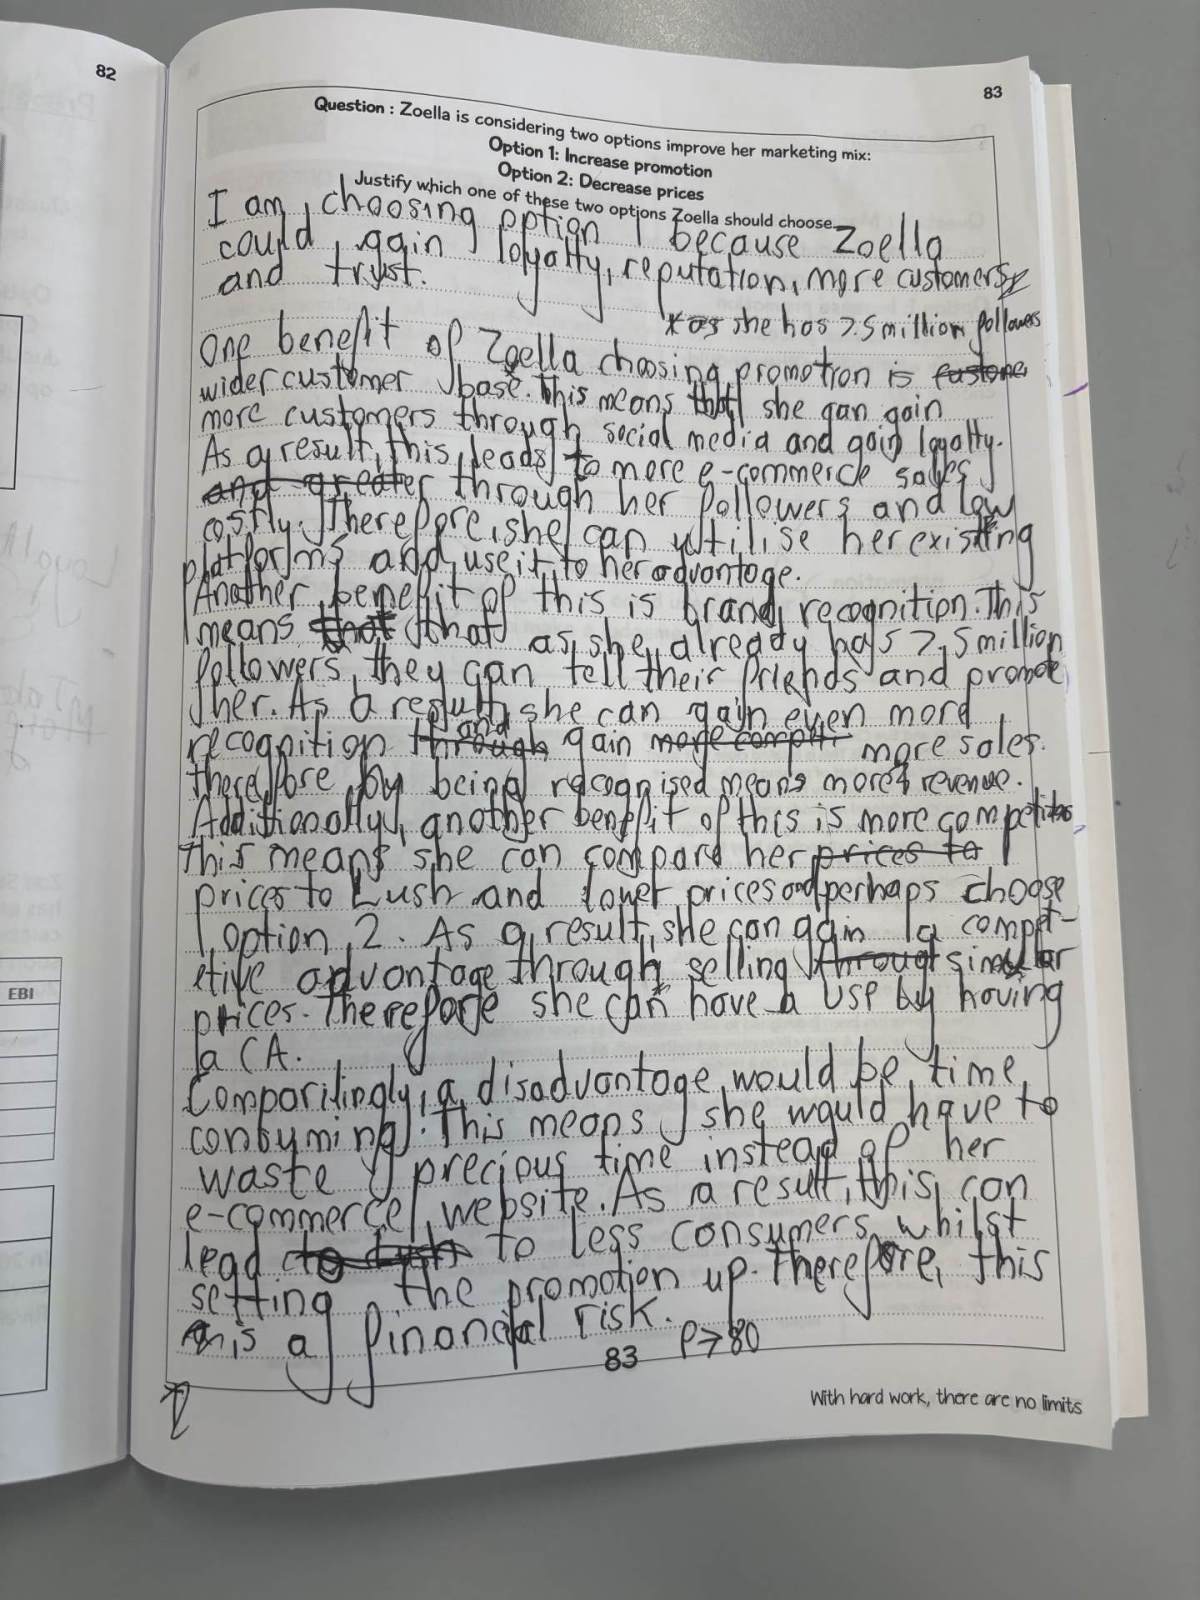 82
83
Question : Zoella is considering two options improve her marketing mix:
Option 1: Increase promotion
Option 2: Decrease prices
Justify which one of these two options Zoella should choose.
I am choosing option 1 because Zoella
could gain loyalty, reputation, more customers
and trust.
*as she has 7.5 million followers
One benefit of Zoella choosing promotion is custome
wider customer base. This means that she can gain
more customers through social media and gain loyalty.
As a result, this leads to more e-commerce sales
and greater through her followers and low
costly. Therefore, she can utilise her existing
platforms and use it to her advantage.
Another benefit of this is brand recognition. This
means that that as she already has 7.5 million
followers, they can tell their friends and promote
her. As a result, she can gain even more
recognition through and gain more compet. more sales.
therefore by being recognised means more revenue.
Additionally, another benefit of this is more competitos
This means she can compare her prices to
prices to Lush and lower prices and perhaps choose
option 2. As a result, she can gain a compet-
etive advantage through selling through similar
prices. Therefore she can have a USP by having
a CA.
Comparitingly, a disadvantage would be time
consuming. This means she would have to
waste precious time instead of her
e-commerce website. As a result, this can
lead to lush to less consumers whilst
setting the promotion up. Therefore, this
is a financial risk.
P→80
83
With hard work, there are no limits
EBI